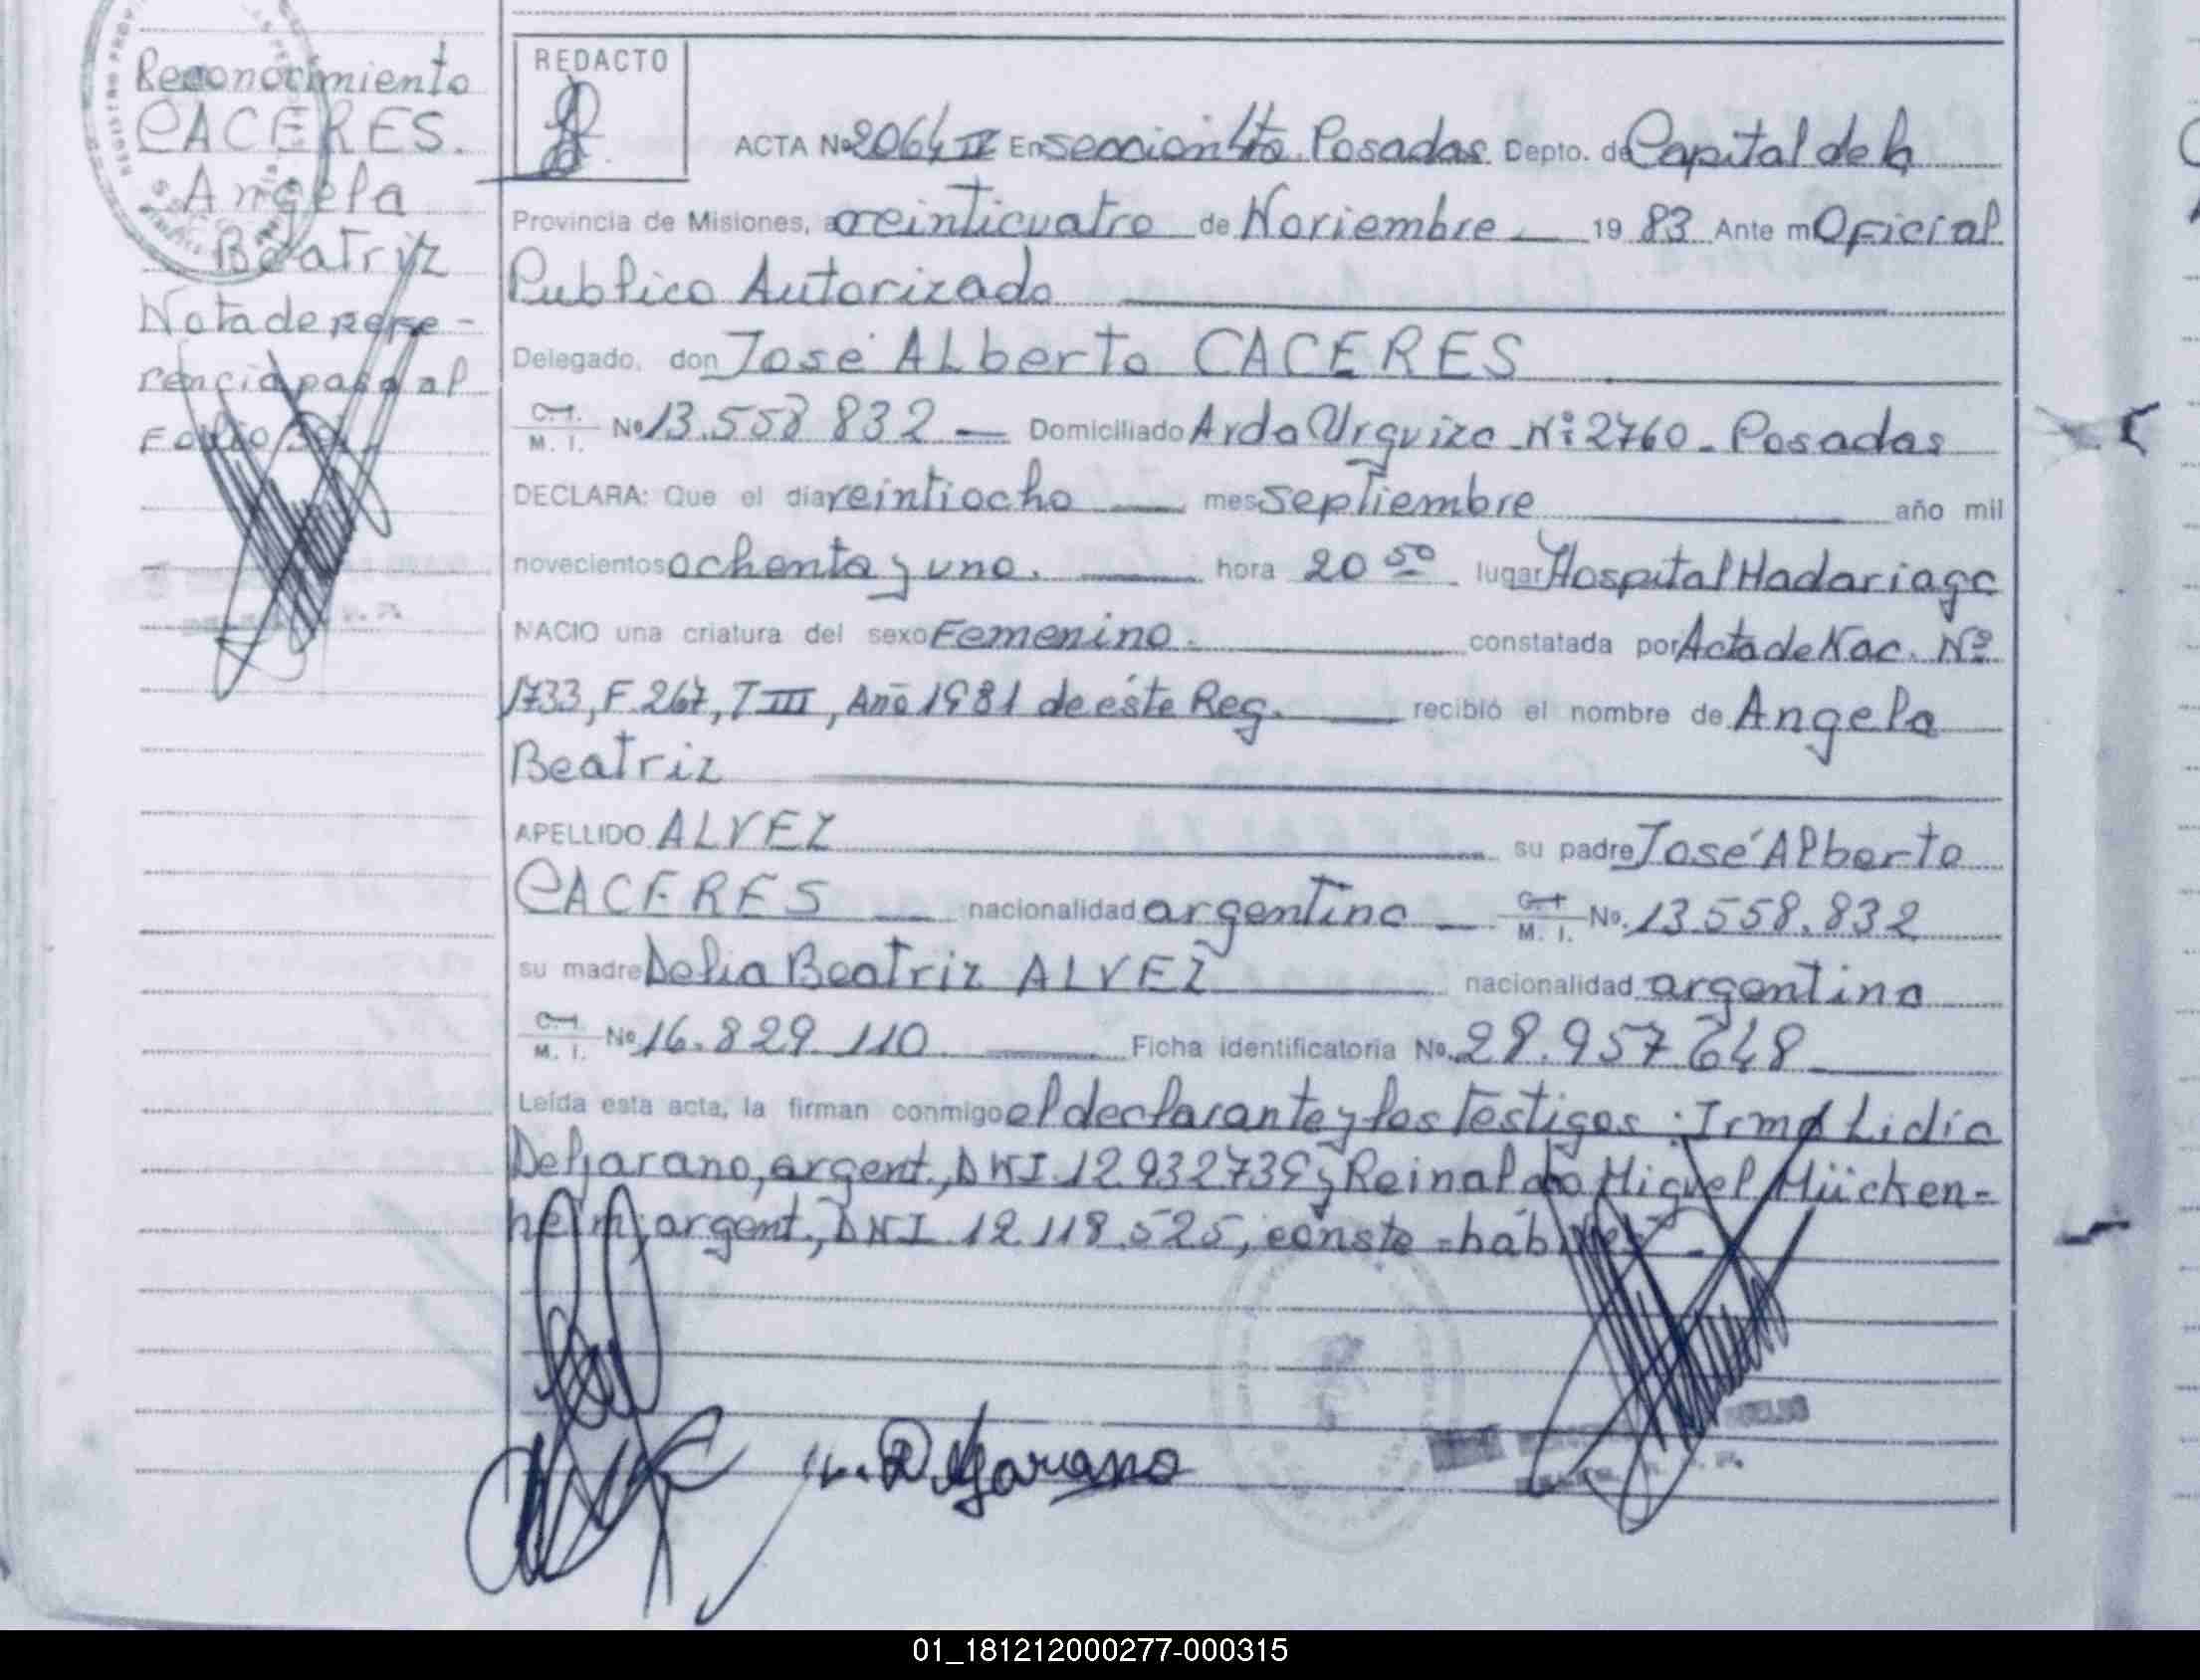 Reconocimiento
CACERES.
Angela
Beatriz
Nota de refe-
rencia pasa al
Folio
REDACTO
ACTA Nº 2064 II En seccion 4ta Posadas Depto. de Capital de la
Provincia de Misiones, a veinticuatro de Noviembre 19 83 Ante mi Oficial
Publico Autorizado
Delegado, don José ALberto CACERES
C.I.
M. I. Nº 13.558 832 Domiciliado Avda Urquiza Nº 2760 - Posadas
DECLARA: Que el dia veintiocho mes septiembre año mil
novecientos ochenta y uno. hora 20 50 lugar Hospital Madariaga
NACIO una criatura del sexo Femenino. constatada por Acta de Nac. Nº
1733, F. 267, T III, Año 1981 de éste Reg. recibió el nombre de Angela
Beatriz
APELLIDO ALVEZ su padre José Alberto
CACERES nacionalidad argentina C.I.
M. I. No. 13.558.832
su madre Delia Beatriz ALVEZ nacionalidad argentina
C.I.
M. I. Nº 16.829.110 Ficha identificatoria No. 28.957.648
Leída esta acta, la firman conmigo el declarante y los testigos: Irma Lidia
Deljarano, argent., DNI 12.932739 y Reinaldo Miguel Mücken-
heim, argent., DNI 12.118.525, conste = hábiles -
01_181212000277-000315